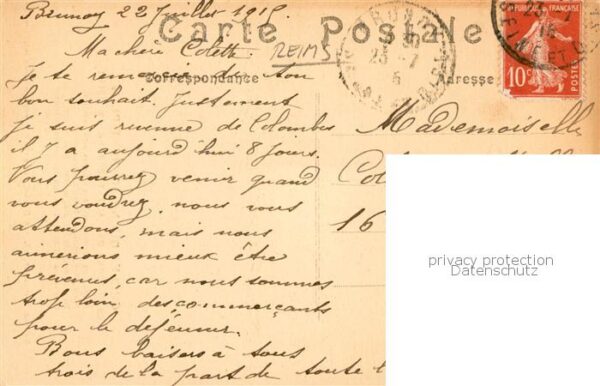 Brunoy 22 Juillet 1915
Carte Postale
Ma chère Colette
REIMS
Correspondance
Adresse
10c
POSTES
Je te remercie de ton
bon souhait. Justement
je suis revenue de Colombes
il y a aujourd'hui 8 jours.
Vous pourrez venir quand
vous voudrez, nous vous
attendons, mais nous
aimerions mieux être
prévenus, car nous sommes
trop loin des commerçants
pour le déjeuner.
Bons baisers à tous
trois de la part de toute
Mademoiselle
16
privacy protection
Datenschutz